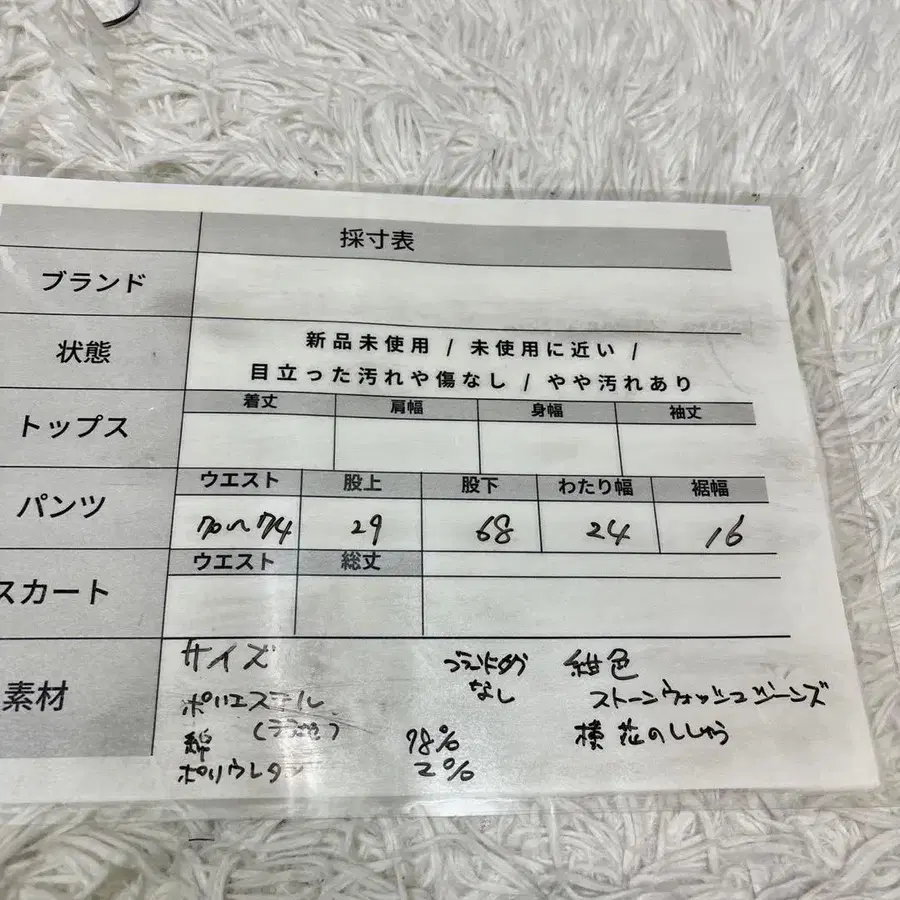 採寸表
ブランド
状態
新品未使用 / 未使用に近い /
目立った汚れや傷なし / やや汚れあり
トップス
着丈 肩幅 身幅 袖丈
パンツ
ウエスト 股上 股下 わたり幅 裾幅
70~74 29 68 24 16
スカート
ウエスト 総丈
素材
サイズ
ポリエステル
綿 98%
ポリウレタン 2%
なし
紺色
ストーンウォッシュジーンズ
横 花のししゅう